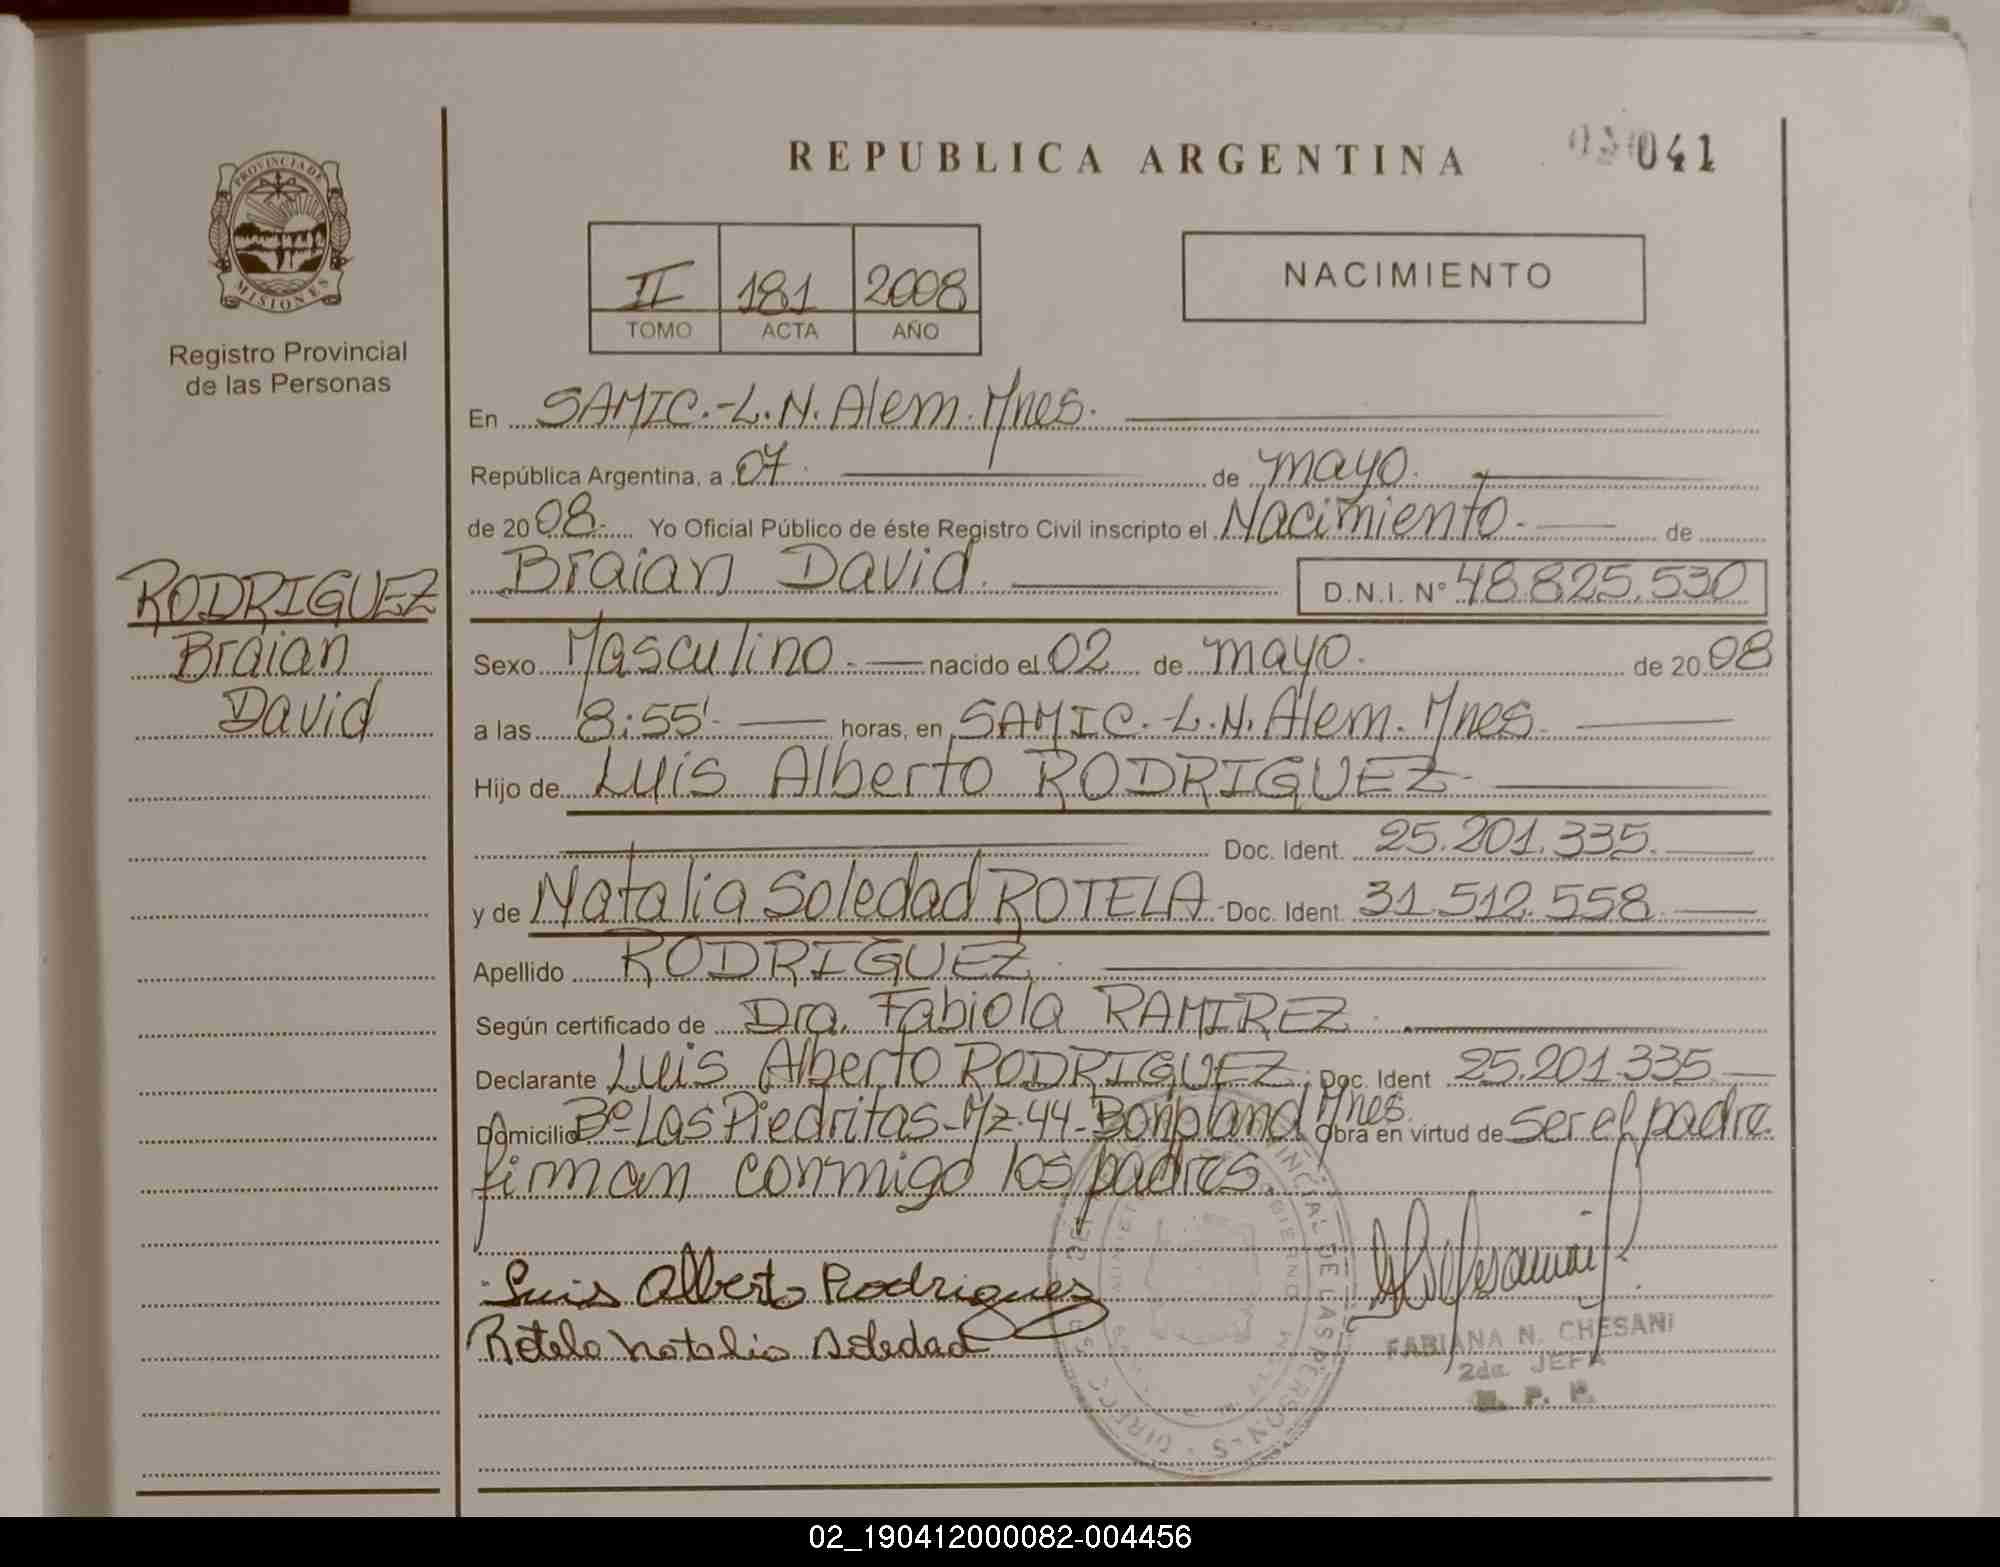 REPUBLICA ARGENTINA
041
PROVINCIA DE
MISIONES
Registro Provincial
de las Personas
II 181 2008
TOMO ACTA AÑO
NACIMIENTO
En SAMIC.-L.N. Alem. Mnes.
República Argentina, a 07. de mayo.
de 2008. Yo Oficial Público de éste Registro Civil inscripto el Nacimiento. de
Braian David. D.N.I. N° 48.825.530
RODRIGUEZ
Braian
David
Sexo Masculino. nacido el 02 de mayo. de 2008
a las 8:55'. horas, en SAMIC.-L.N. Alem. Mnes.
Hijo de Luis Alberto RODRIGUEZ
Doc. Ident. 25.201.335.
y de Natalia Soledad ROTELA Doc. Ident. 31.512.558
Apellido RODRIGUEZ.
Según certificado de Dra. Fabiola RAMIREZ.
Declarante Luis Alberto RODRIGUEZ. Doc. Ident 25.201.335
Domicilio Bº Las Piedritas-Mz.44-Bonpland Mnes. Obra en virtud de ser el padre.
firman conmigo los padres.
Luis Alberto Rodriguez
Rotela Natalia Soledad
FABIANA N. CHESANI
2da. JEFA
R. P. P.
02_190412000082-004456